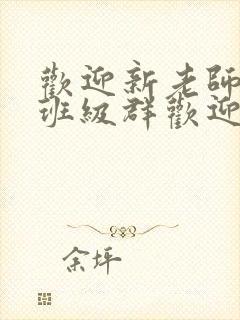 歡迎新老師
班級群歡迎
余坪